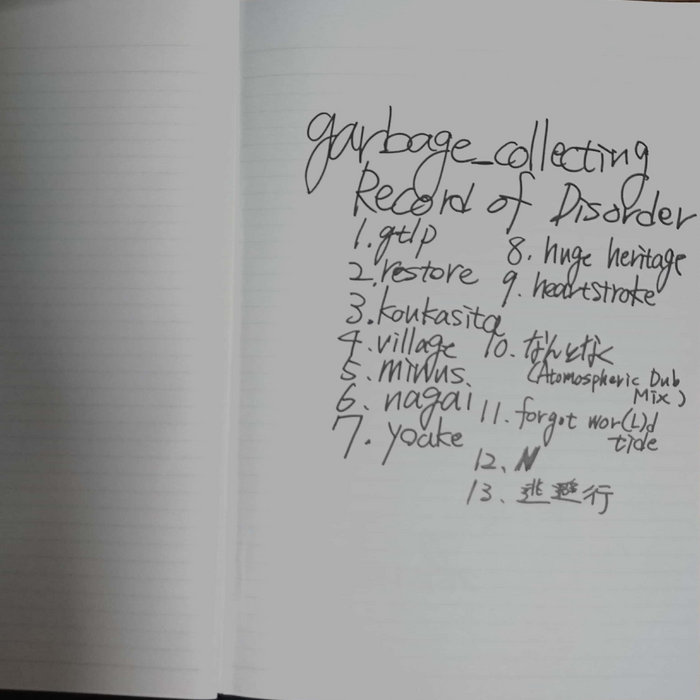 garbage_collecting
Record of Disorder
1. gtlp
2. restore
3. koukasita
4. village
5. minus.
6. nagai
7. yoake
8. huge heritage
9. heartstroke
10. なんとなく
(Atomospheric Dub
Mix)
11. forgot wor(L)d
tide
12. N
13. 逃避行